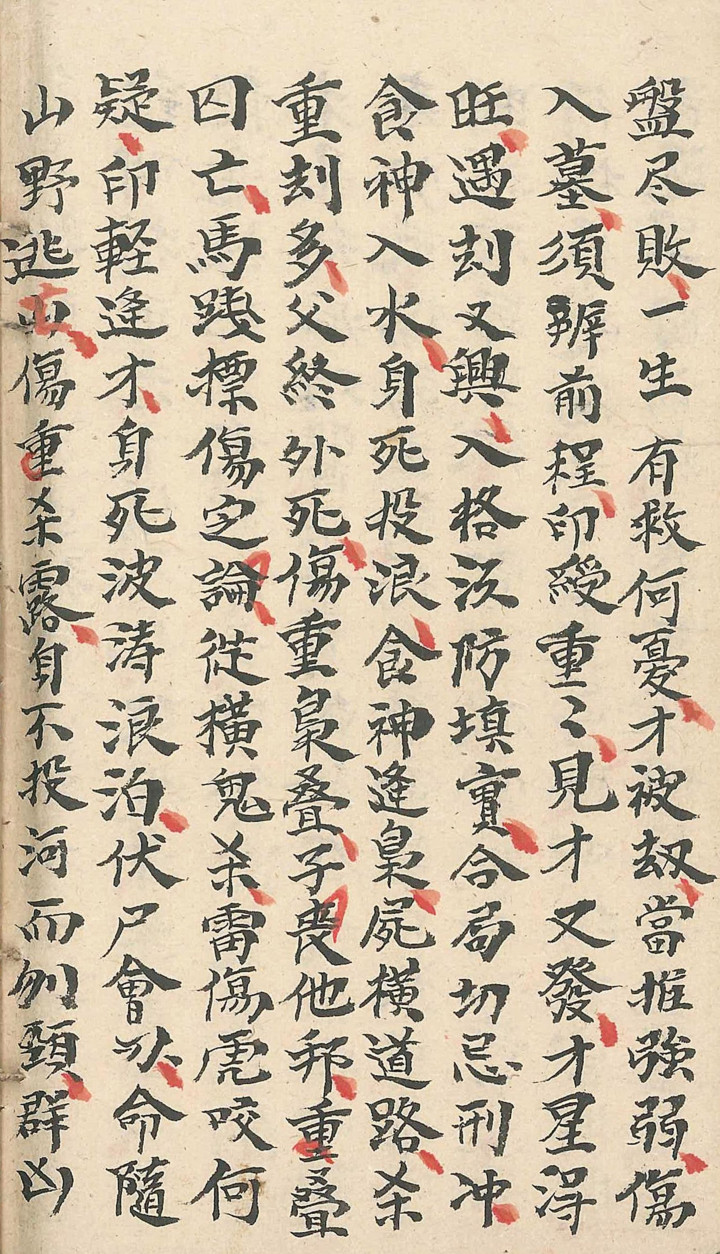 盤尽敗一生有救何憂才被劫當推強弱傷
入墓須辨前程印綬重〻見才又發才星得
旺遇刦又興入格須防填實合局切忌刑冲
食神入水身死投浪食神逢梟屍橫道路杀
重刦多父終外死傷重梟叠子喪他邦重叠
囚亡馬踐摽傷定論從橫鬼杀雷傷虎咬何
疑印軽逢才身死波涛浪泊伏尸會以命隨
山野逃山傷重杀露自不投河而刎頸群凶